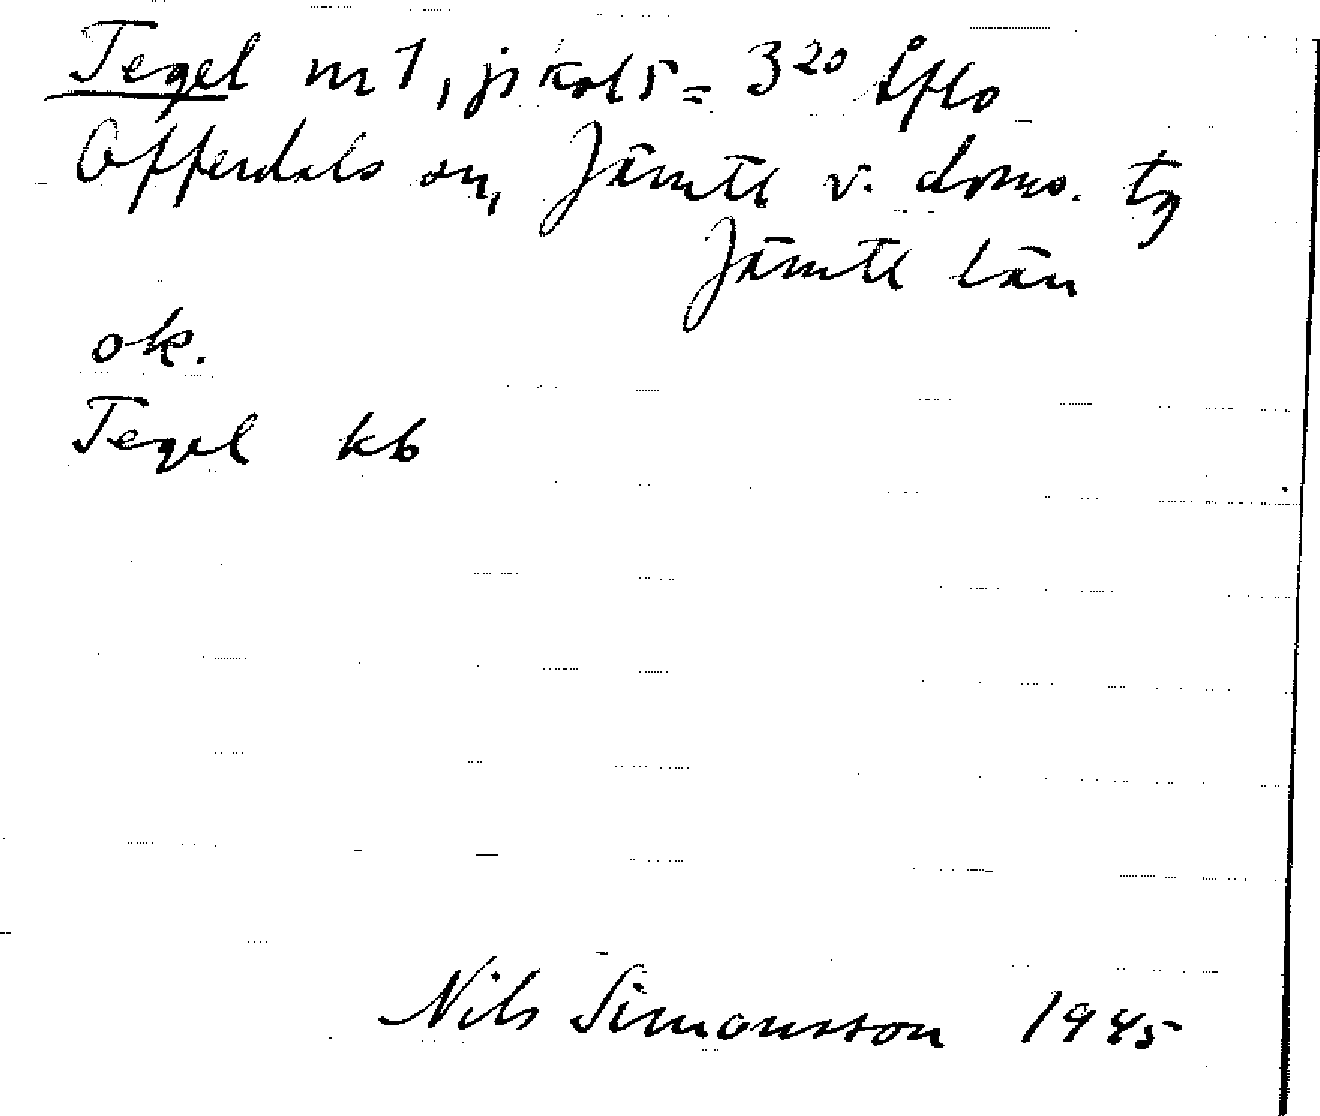 Tegel nr 1, jr kbl 5 = 3²⁰ Åflo
Offerdals sn, Jämtl v. doms. tg
Jämtl län
ok.
Tegel kb
Nils Simonsson 1945